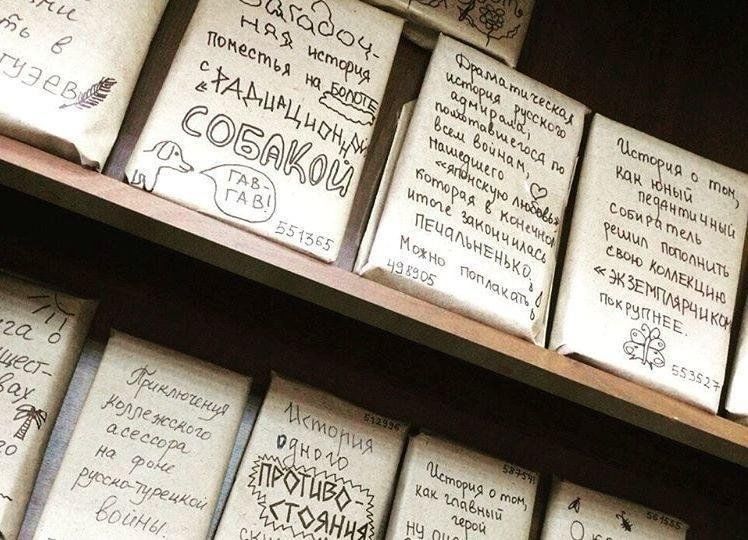 ть в
Загадоч-
ная история
поместья на болоте
с «радиационной
СОБАКОЙ
ГАВ-
ГАВ!
551365
Драматическая
история русского
адмирала,
помотавшегося по
всем войнам,
нашедшего
«японскую любовь»
которая в конечном
итоге закончилась
ПЕЧАЛЬНЕНЬКО.
Можно поплакать
498905
История о том,
как юный
педантичный
собиратель
решил пополнить
свою коллекцию
«ЭКЗЕМПЛЯРЧИКОМ
ПОКРУПНЕЕ.
553527
Приключения
коллежского
асессора
на фоне
русско-турецкой
войны.
512996
История
одного
ПРОТИВО-
СТОЯНИЯ
587571
История о том,
как главный
герой
561555